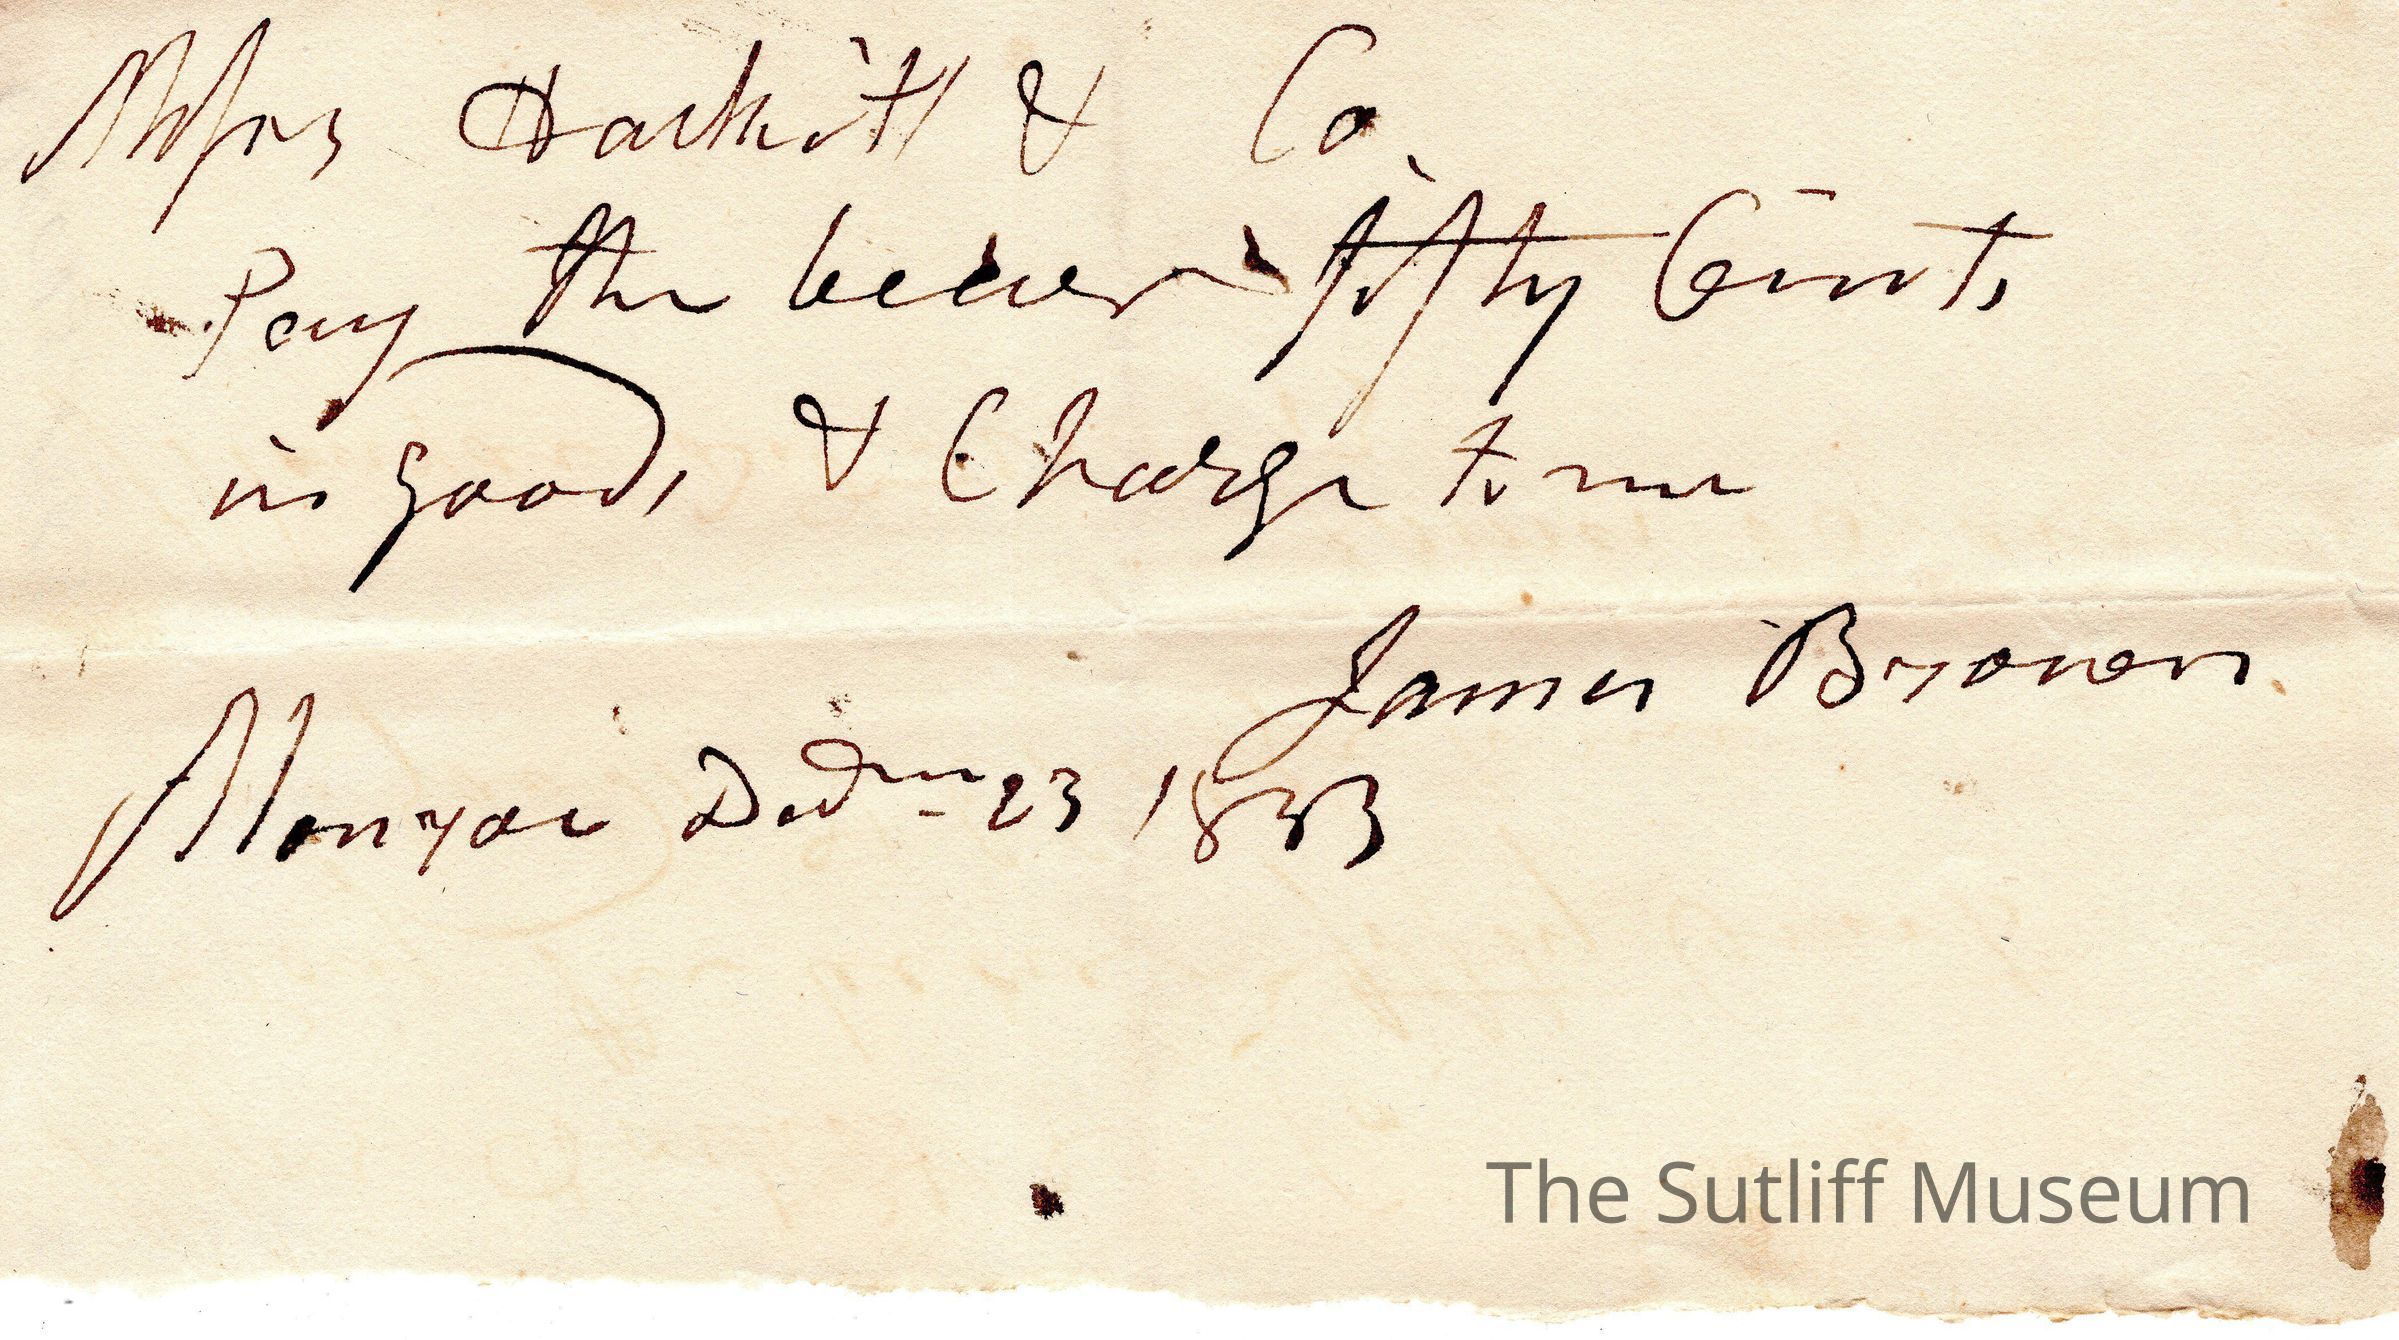 Messrs Hackitt & Co.
Pay the bearer fifty Cents
in goods & Charge to me
James Brown
Monroe 23 1833
The Sutliff Museum